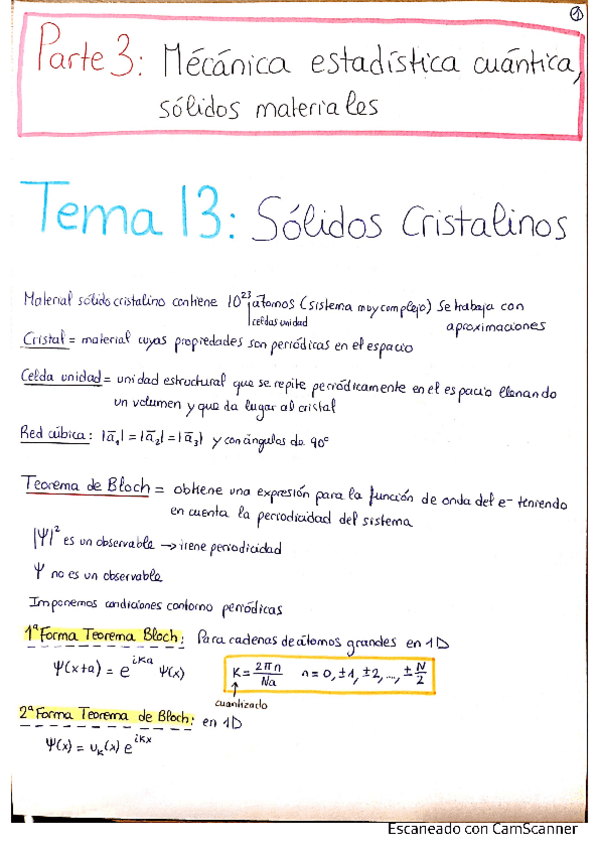 1
Parte 3: Mécánica estadística cuántica,
sólidos materiales
Tema 13: Sólidos Cristalinos
Material sólido cristalino contiene 10²³ átomos (sistema muy complejo) Se trabaja con
celdas unidad
aproximaciones
Cristal = material cuyas propiedades son periódicas en el espacio
Celda unidad = unidad estructural que se repite periódicamente en el espacio llenando
un volumen y que da lugar al cristal
Red cúbica: |ā₁| = |ā₂| = |ā₃| y con ángulos de 90°
Teorema de Bloch = obtiene una expresión para la función de onda del e- teniendo
en cuenta la periodicidad del sistema
|Ψ|² es un observable → tiene periodicidad
Ψ no es un observable
Imponemos condiciones contorno periódicas
1ª Forma Teorema Bloch: Para cadenas de átomos grandes en 1D
Ψ(x+a) = e^{iKa} Ψ(x) K = 2πn/Na n = 0, ±1, ±2, ..., ±N/2
cuantizado
2ª Forma Teorema de Bloch: en 1D
Ψ(x) = u_K(x) e^{iKx}
Escaneado con CamScanner